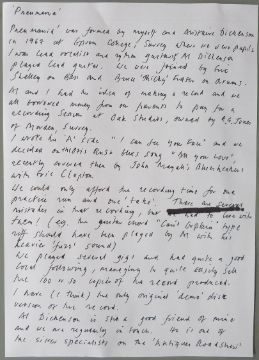 'Pneumania'
'Pneumania' was formed by myself and Alistair Dickenson
in 1967 at Ewell College, Surrey where we were pupils.
I was lead vocalist and rhythm guitarist Al Dickenson
played lead guitar. We were joined by Eric
on Bass and Bruce on drums.
Al and I had the idea of making a record and we
all borrowed money from our parents to pay for a
recording session at Oak Studios, owned by R.G. Jones
of Morden, Surrey.
I wrote the 'A' side "I can See Your Face" and we
decided on the Otis Rush blues song "All your Love",
recently covered then by John Mayall's Bluesbreakers
with Eric Clapton.
We could only afford the recording time for one
practice run and one 'take'.
mistakes in that recording, but had to live with
them! (e.g. the guitar chord 'Can't Explain' type
riff should have been played by Al with his
heavier 'fuzz' sound)
We played several gigs and had quite a good
local following, managing to quite easily sell
the 100 or so copies of the record produced.
I have (I think) the only original demo disk
version of the record.
Al Dickenson is still a good friend of mine
and we are regularly in touch. He is one of
the silver specialists on the 'Antiques Roadshow'